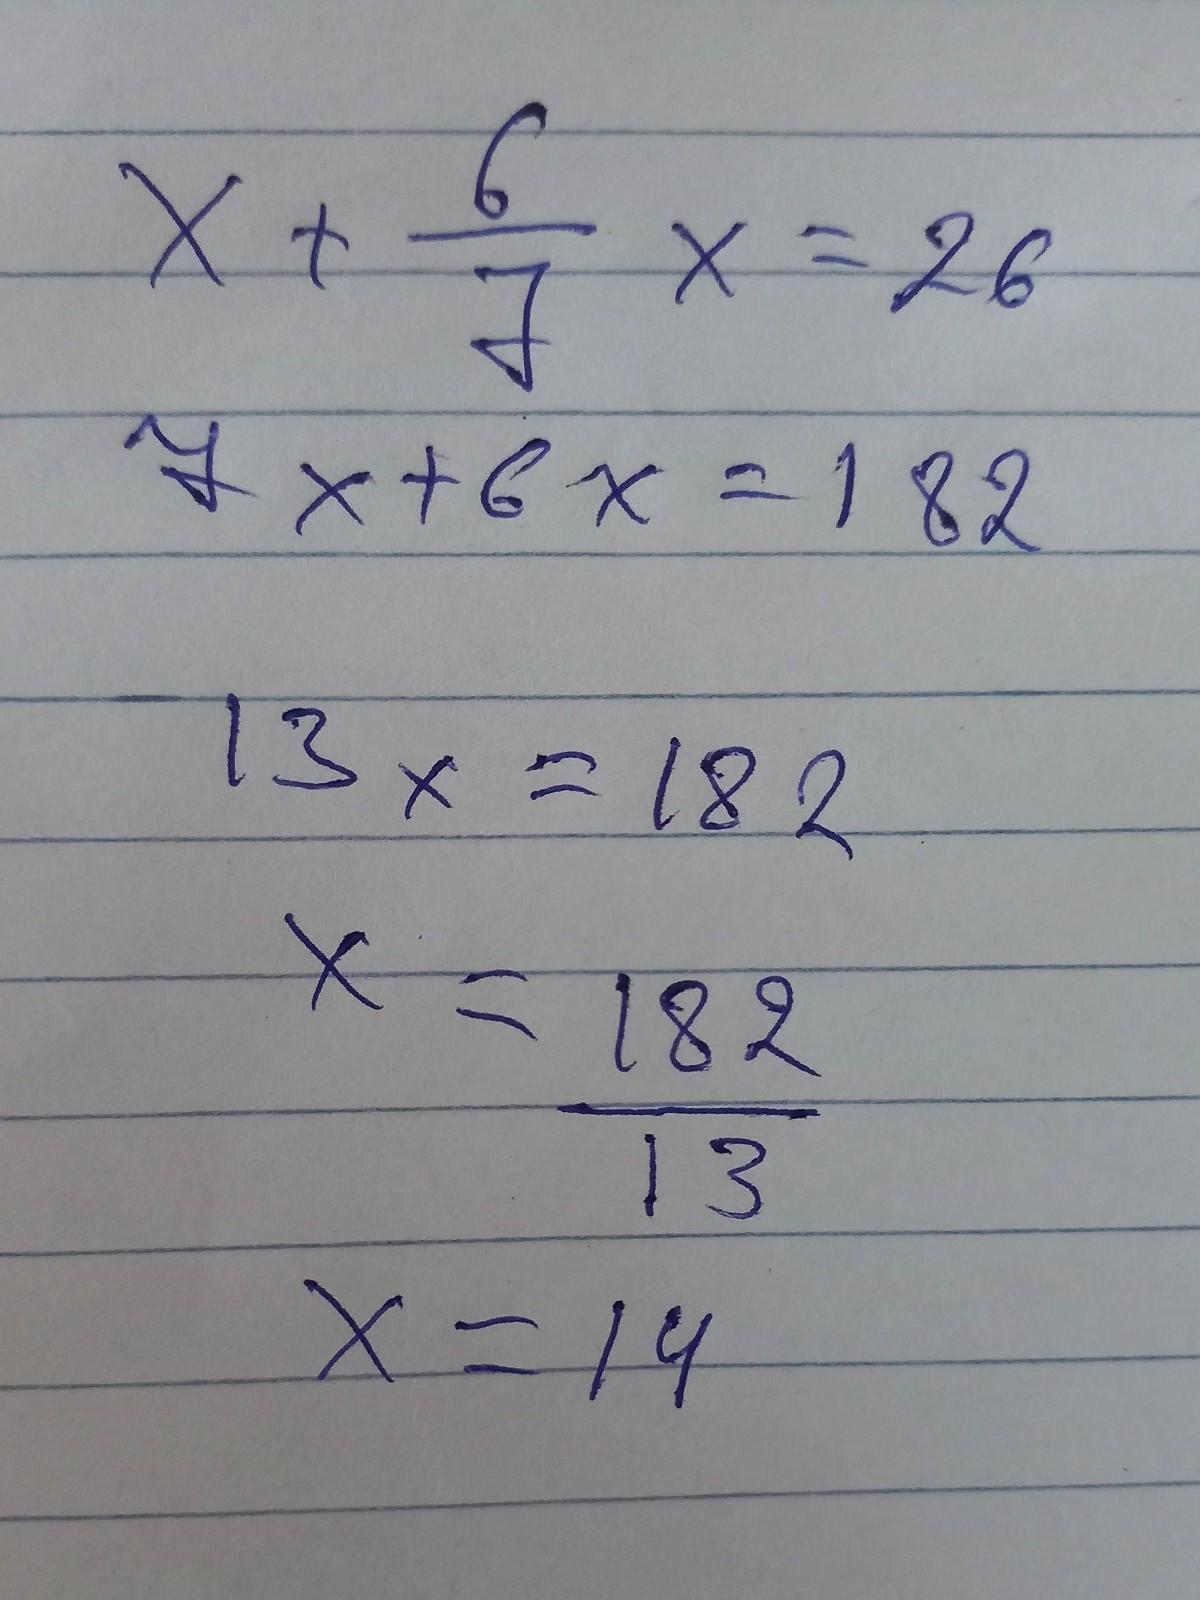 X + 6/7 x = 26
7x + 6x = 182
13x = 182
x = 182/13
x = 14